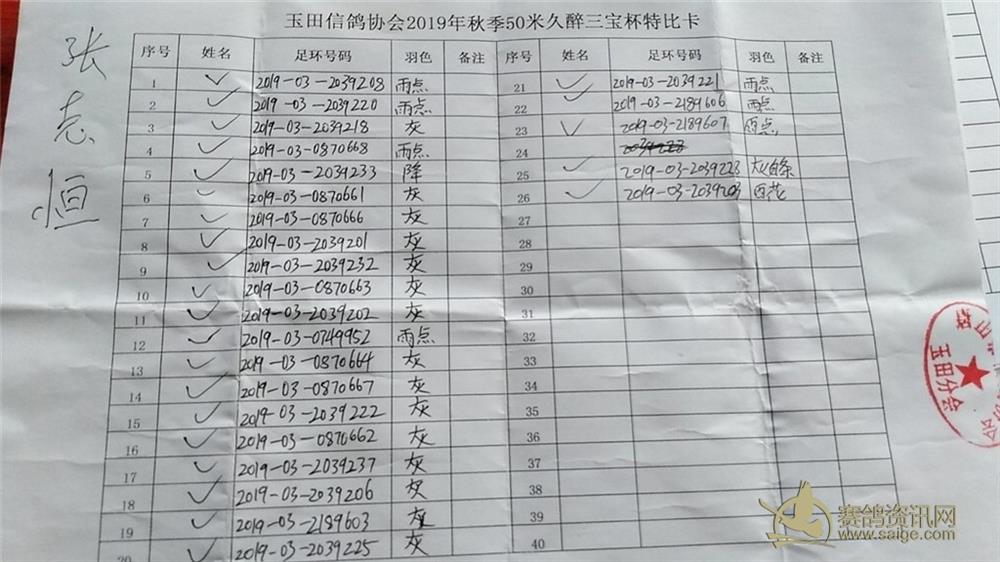 玉田信鸽协会2019年秋季50米久醉三宝杯特比卡
张志恒
序号 姓名 足环号码 羽色 备注 序号 姓名 足环号码 羽色 备注
1 ✓ 2019-03-2039208 雨点 21 ✓ 2019-03-2039221 雨点
2 ✓ 2019-03-2039220 雨点 22 ✓ 2019-03-2189606 雨点
3 ✓ 2019-03-2039218 灰 23 ✓ 2019-03-2189607 雨点
4 ✓ 2019-03-0870668 雨点 24
5 ✓ 2019-03-2039233 降 25 ✓ 2019-03-2039223 灰白条
6 ✓ 2019-03-0870661 灰 26 ✓ 2019-03-2039203 雨花
7 ✓ 2019-03-0870666 灰 27
8 ✓ 2019-03-2039201 灰 28
9 ✓ 2019-03-2039232 灰 29
10 ✓ 2019-03-0870663 灰 30
11 ✓ 2019-03-2039202 灰 31
12 ✓ 2019-03-0749952 雨点 32
13 ✓ 2019-03-0870664 灰 33
14 ✓ 2019-03-0870667 灰 34
15 ✓ 2019-03-2039222 灰 35
16 ✓ 2019-03-0870662 灰 36
17 ✓ 2019-03-2039237 灰 37
18 ✓ 2019-03-2039206 灰 38
19 ✓ 2019-03-2189603 灰 39
20 ✓ 2019-03-2039225 灰 40
玉田分会
赛鸽资讯网
www.saige.com